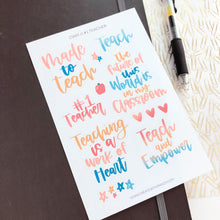 Made
to
teach
Teach
the future
of the
World is
in my
Classroom
#1
Teacher
Teaching
is a
work of
Heart
Teach
and
Empower